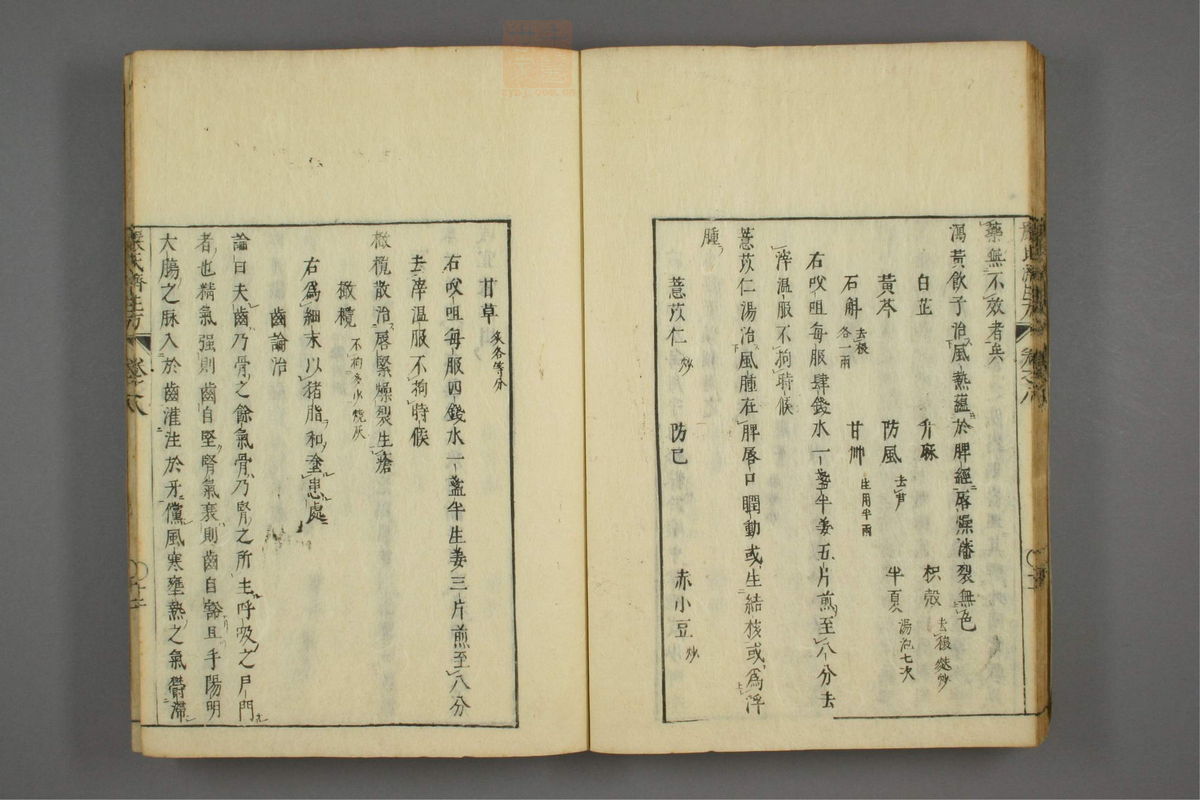 藥無不效者矣
瀉黃飲子治風熱蘊於脾經唇燥瀋裂無色
白芷 升麻 枳殼去穰麩炒
黃芩 防風去芦 半夏湯泡七次
石斛去根各一兩 甘艸生用半兩
右㕮咀每服肆錢水一盞半姜五片煎至八分去
滓温服不拘時候
薏苡仁湯治風腫在脾唇口瞤動或生結核或為浮
腫
薏苡仁炒 防己 赤小豆炒
甘草炙各等分
右㕮咀每服四錢水一盞半生姜三片煎至八分
去滓温服不拘時候
橄欖散治唇緊燥裂生瘡
橄欖不拘多少燒灰
右為細末以猪脂和塗患處
齒論治
論曰夫齒乃骨之餘氣骨乃腎之所主呼吸之戸門
者也精氣强則齒自堅腎氣衰則齒自豁且手陽明
大腸之脉入於齒灌注於牙儻風寒壅熱之氣欝滯
嚴氏濟生方 卷之八